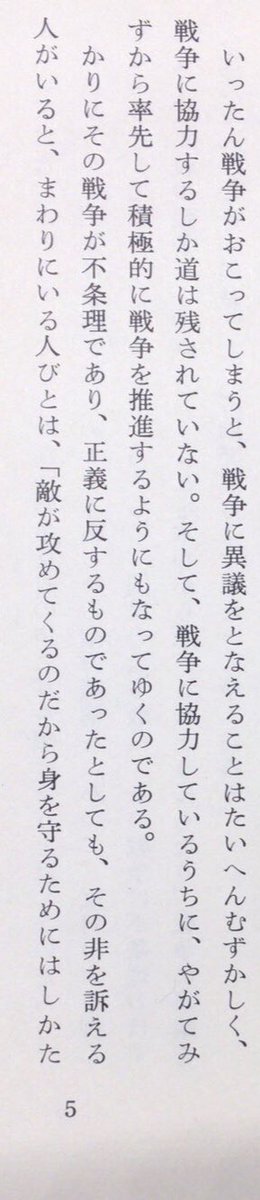 いったん戦争がおこってしまうと、戦争に異議をとなえることはたいへんむずかしく、
戦争に協力するしか道は残されていない。そして、戦争に協力しているうちに、やがてみ
ずから率先して積極的に戦争を推進するようにもなってゆくのである。
かりにその戦争が不条理であり、正義に反するものであったとしても、その非を訴える
人がいると、まわりにいる人びとは、「敵が攻めてくるのだから身を守るためにはしかた
5